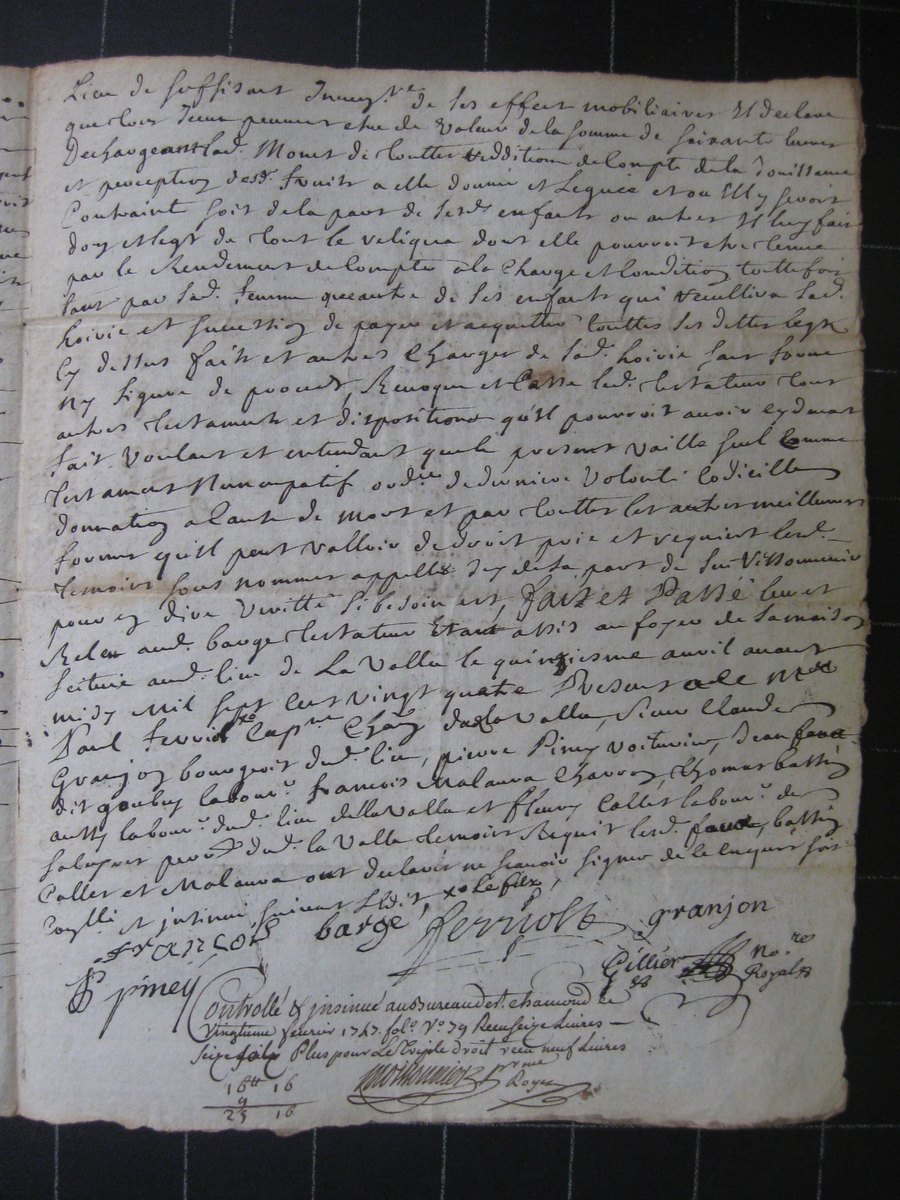 Lieu de suffisant Inventre de ses effects mobiliaires Il declare
que tous iceux peuvent etre de valeur de la somme de soixante livres
Dechargeant lad. de touttes redditions de Compte de la Jouissance
et perception desd. fruits a elle donnée et Leguée et ou Il luy seroit
Contraint soit de la part de sesds enfants ou autres Il luy fait
don et legt de tout le reliqua dont elle pourroit etre tenue
par le Rendement de Compte a la Charge et Condition touttefois
tant par lad. femme que autre de ses enfants qui recullira lad.
hoirie et succession de payer et acquitter touttes ses dettes legts
Cy dessus faits et autres Charges de lad. hoirie sans forme
Ny figure de procest, Revoque et Casse led. testateur tout
autres testaments et dispositions qu'Il pourroit avoir Cydevant
fait Voulant et entendant que le present Vaille seul Comme
testament Noncupatif ordre de derniere Volonté Codicille
donnation a Cause de mort et par touttes les autres meilleures
formes qu'Il peut valloir de droit prie et requiert lesd.
temoins sous nommes appellés de sa part de s'en
pour en dire Veritté si besoin est, fait et Passé leu et
Releu aud. barge testateur Etant assis au foyer de sa maison
scituée aud. lieu de La Valla le quinziesme avril avant
midy Mil sept Cent Vingt quatre Present a Ce Mre
Paul ferriolt de la Valla, Sieur Claude
Granjon bourgeois dud. lieu, pierre Piney voiturier, Jean faure
dit labourr francois Malaura Charron, Thomas
aussy labourr dud. lieu de la Valla et fleury Callet labourr de
dud. la Valla temoins Requis lesd. faure,
Callet et Malaura ont declaré ne scavoir signer de ce enquis soit
Conllé et insinué suivant l'Edit,
francois barge, ferriolt granjon
P piney Gillier Nore Royal
Controllé & insinué au Bureau de st. chamond Le
vingtième fevrier 1747. folo Vo 79 Receu seize Livres
seize sols Plus pour Le Triple droit receu neuf Livres
16tt 16
9
25 16